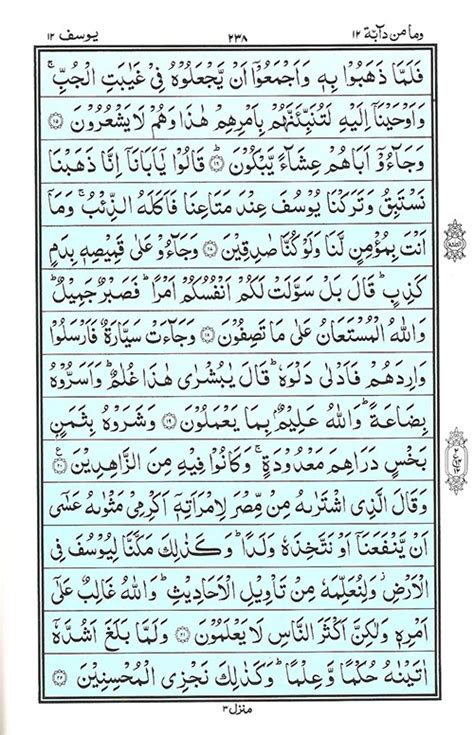 وما من دآبة ١٢ ٢٣٨ يوسف ١٢
فَلَمَّا ذَهَبُوۡا بِهٖ وَاَجۡمَعُوۡۤا اَنۡ يَّجۡعَلُوۡهُ فِىۡ غَيٰبَتِ الۡجُبِّ‌ۚ
وَاَوۡحَيۡنَاۤ اِلَيۡهِ لَـتُنَـبِّئَنَّهُمۡ بِاَمۡرِهِمۡ هٰذَا وَهُمۡ لَا يَشۡعُرُوۡنَ ١٥
وَجَآءُوۡۤ اَبَاهُمۡ عِشَآءً يَّبۡكُوۡنَؕ ١٦ قَالُوۡا يٰۤاَبَانَاۤ اِنَّا ذَهَبۡنَا
نَسۡتَبِقُ وَتَرَكۡنَا يُوۡسُفَ عِنۡدَ مَتَاعِنَا فَاَكَلَهُ الذِّئۡبُ‌ۚ وَمَاۤ
اَنۡتَ بِمُؤۡمِنٍ لَّنَا وَلَوۡ كُنَّا صٰدِقِيۡنَ ١٧ وَجَآءُوۡ عَلٰى قَمِيۡصِهٖ بِدَمٍ
كَذِبٍ‌ؕ قَالَ بَلۡ سَوَّلَتۡ لَـكُمۡ اَنۡفُسُكُمۡ اَمۡرًا‌ؕ فَصَبۡرٌ جَمِيۡلٌ‌ؕ
وَاللّٰهُ الۡمُسۡتَعَانُ عَلٰى مَا تَصِفُوۡنَ ١٨ وَجَآءَتۡ سَيَّارَةٌ فَاَرۡسَلُوۡا
وَارِدَهُمۡ فَاَدۡلٰى دَلۡوَهٗ‌ؕ قَالَ يٰبُشۡرٰى هٰذَا غُلٰمٌ‌ؕ وَاَسَرُّوۡهُ
بِضَاعَةً‌ؕ وَاللّٰهُ عَلِيۡمٌۢ بِمَا يَعۡمَلُوۡنَ ١٩ وَشَرَوۡهُ بِثَمَنٍۢ
بَخۡسٍ دَرَاهِمَ مَعۡدُوۡدَةٍ‌ۚ وَكَانُوۡا فِيۡهِ مِنَ الزّٰهِدِيۡنَ ٢٠
وَقَالَ الَّذِى اشۡتَرٰٮهُ مِنۡ مِّصۡرَ لِامۡرَاَتِهٖۤ اَكۡرِمِىۡ مَثۡوٰٮهُ عَسٰٓى
اَنۡ يَّنۡفَعَنَاۤ اَوۡ نَـتَّخِذَهٗ وَلَدًا‌ؕ وَكَذٰلِكَ مَكَّنَّا لِيُوۡسُفَ فِى
الۡاَرۡضِ وَلِنُعَلِّمَهٗ مِنۡ تَاۡوِيۡلِ الۡاَحَادِيۡثِ‌ؕ وَاللّٰهُ غَالِبٌ عَلٰٓى
اَمۡرِهٖ وَلٰـكِنَّ اَكۡثَرَ النَّاسِ لَا يَعۡلَمُوۡنَ ٢١ وَلَمَّا بَلَغَ اَشُدَّهٗۤ
اٰتَيۡنٰهُ حُكۡمًا وَّعِلۡمًا‌ؕ وَكَذٰلِكَ نَجۡزِى الۡمُحۡسِنِيۡنَ ٢٢
منزل ٣